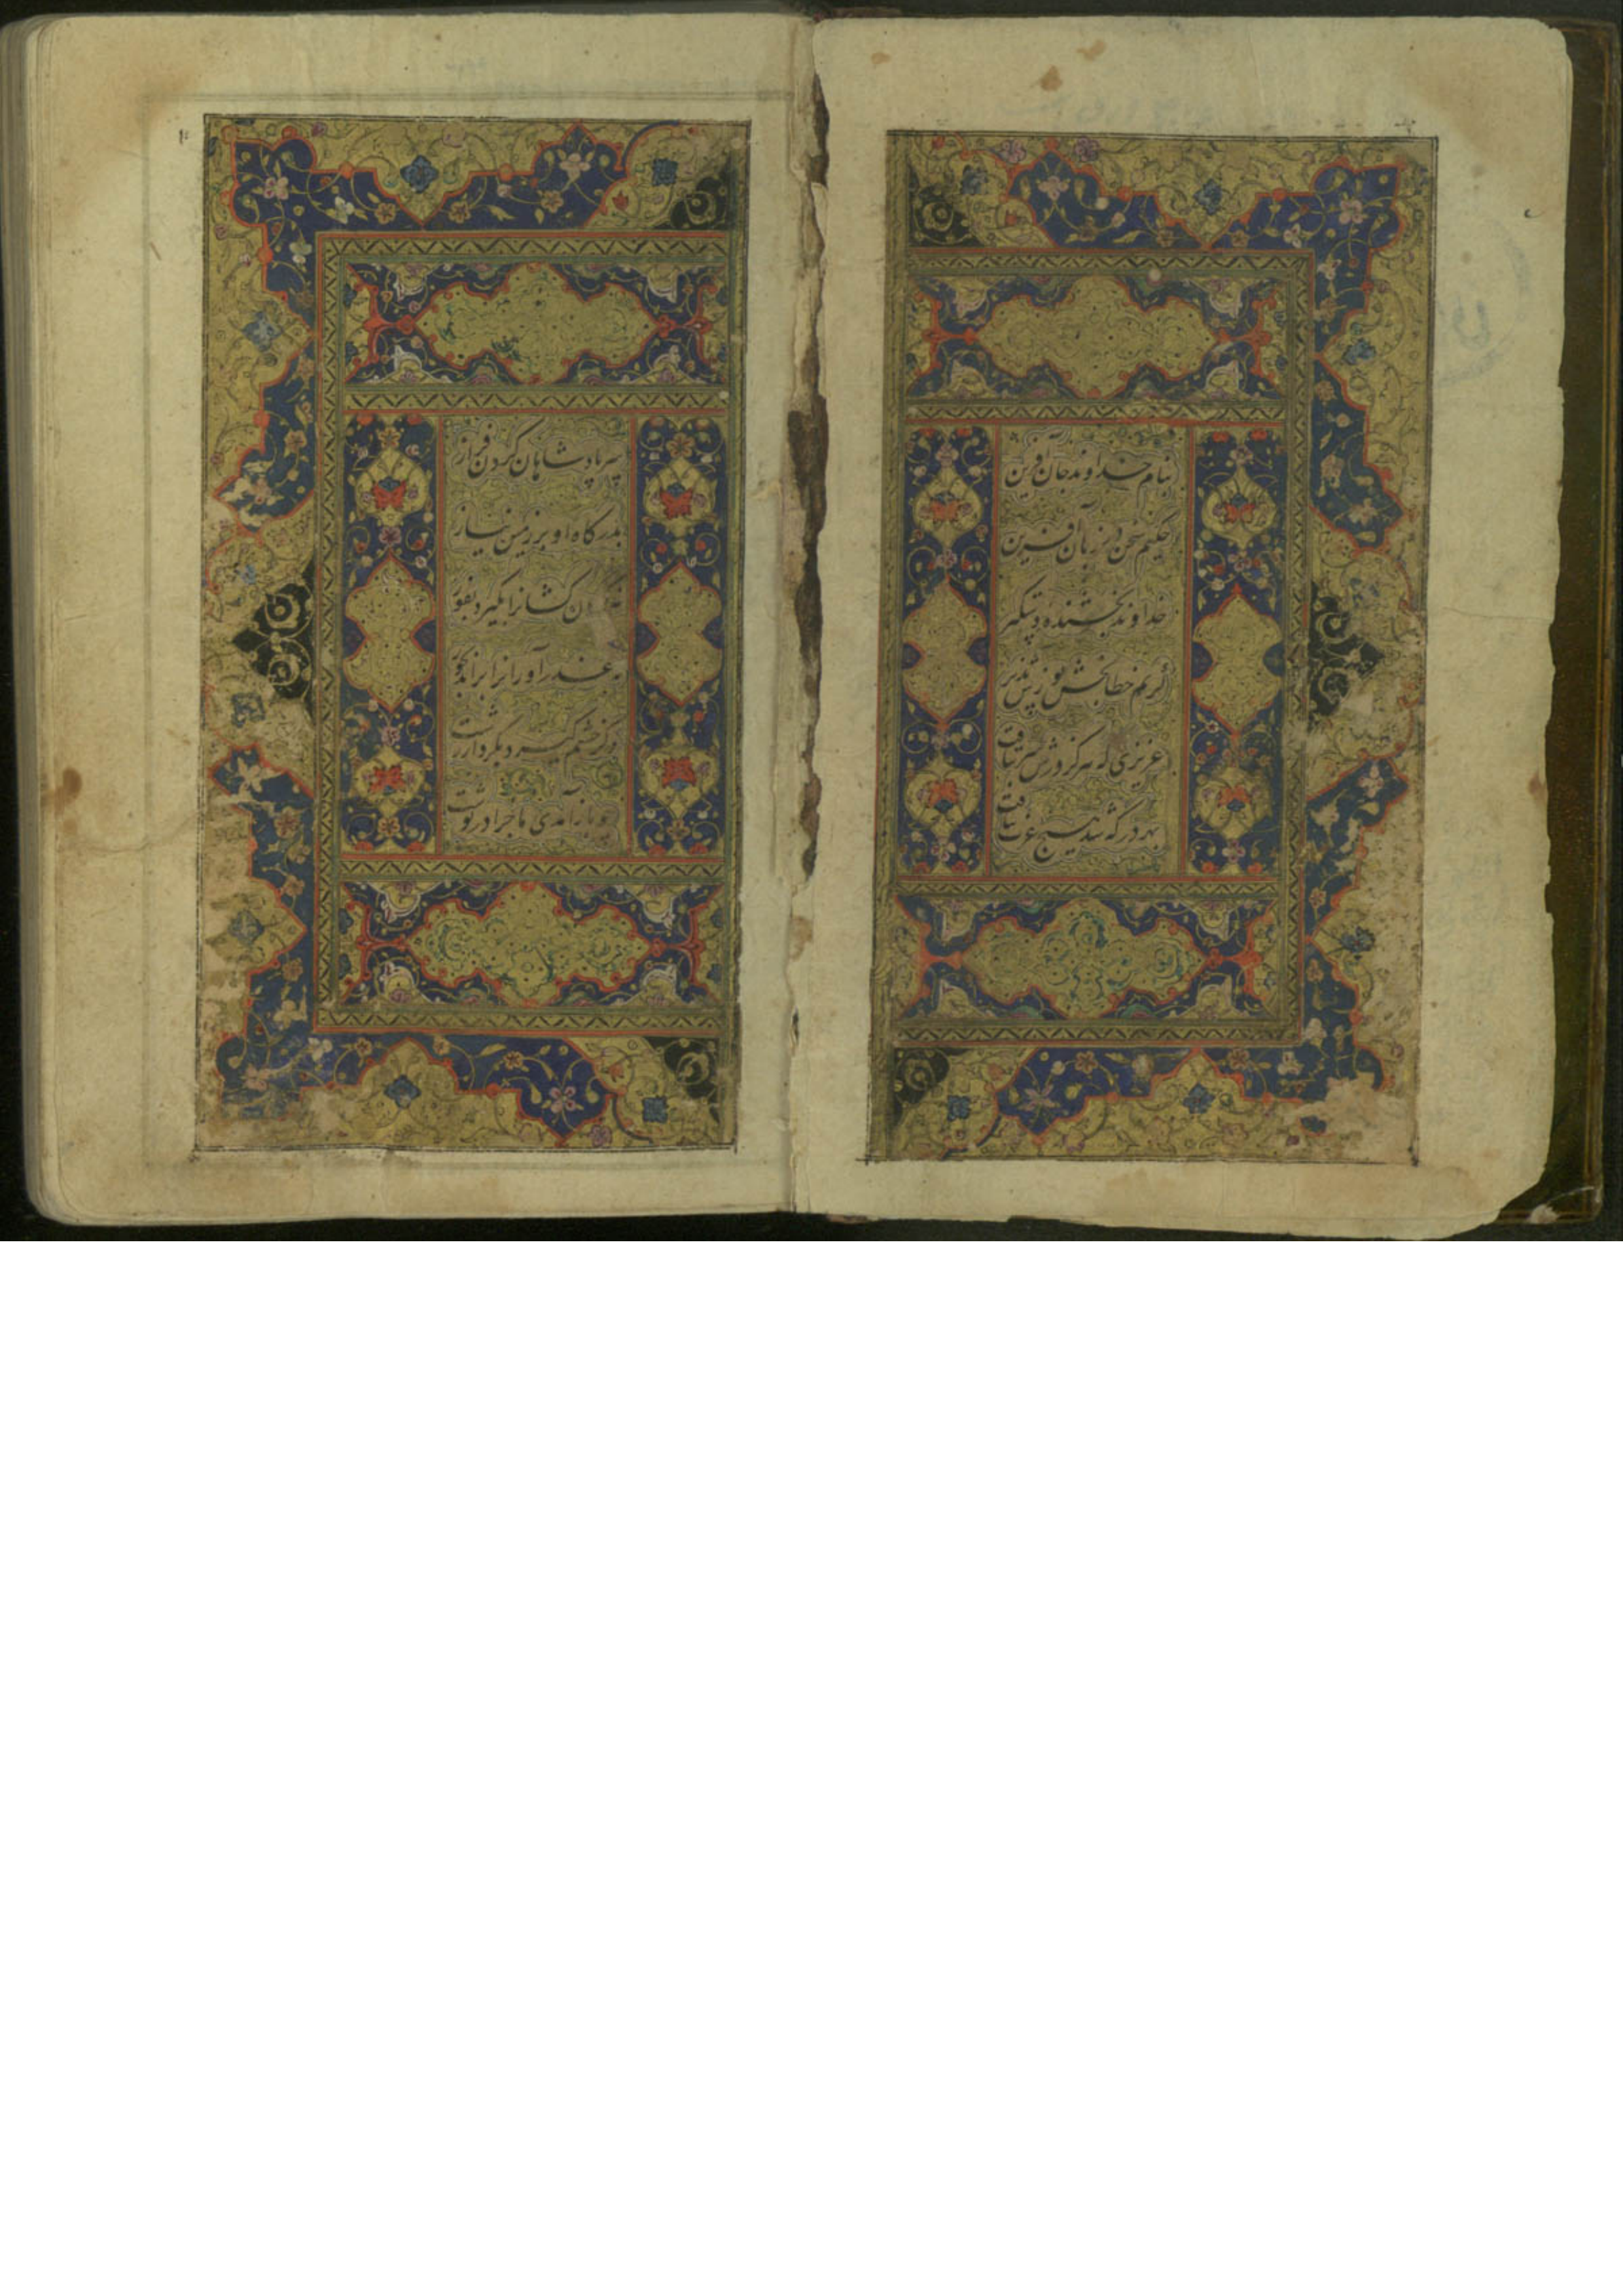 بنام خداوند جان آفرین
حکیم سخن در زبان آفرین
خداوند بخشنده دستگیر
کریم خطابخش پوزش پذیر
عزیزی که هرکز درش سر بتافت
بهر در که شد هیچ عزت نیافت
سر پادشاهان کردن فراز
بدرکاه او بر زمین نیاز
کشانرا بکیرد بفور
نه عذرآورانرا براند بجور
وکر خشم کیرد بکردار زشت
چو بازآمدی ماجرا درنوشت